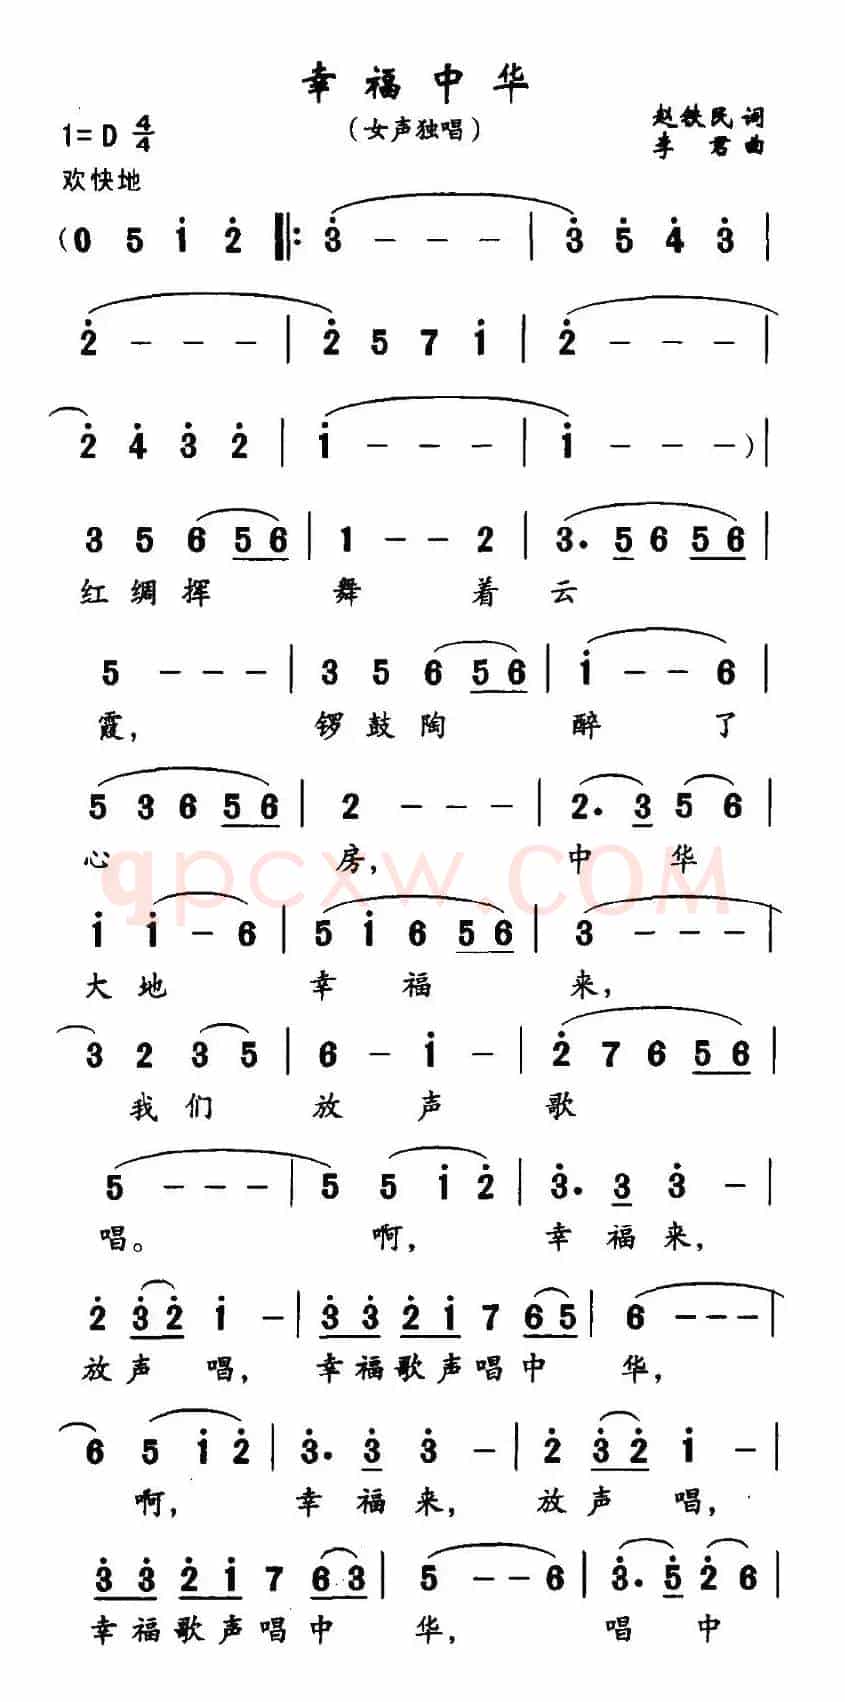 幸福中华
(女声独唱)
1=D 4/4
赵铁民 词
李 君 曲
欢快地
(0 5 i 2̇ ‖: 3̇ - - - | 3̇ 5̇ 4̇ 3̇ |
2̇ - - - | 2̇ 5 7 i | 2̇ - - - |
2̇ 4̇ 3̇ 2̇ | i - - - | i - - -) |
3 5 6 5 6 | 1 - - 2 | 3. 5 6 5 6 |
红绸挥 舞 着 云
5 - - - | 3 5 6 5 6 | i - - 6 |
霞, 锣鼓陶 醉 了
5 3 6 5 6 | 2 - - - | 2. 3 5 6 |
心 房, 中 华
i i - 6 | 5 i 6 5 6 | 3 - - - |
大地 幸 福 来,
3 2 3 5 | 6 - i - | 2̇ 7 6 5 6 |
我们 放 声 歌
5 - - - | 5 5 i 2̇ | 3̇. 3̇ 3̇ - |
唱。 啊, 幸福来,
2̇ 3̇ 2̇ i - | 3̇ 3̇ 2̇ i 7 6 5 | 6 - - - |
放声 唱, 幸福歌声唱中 华,
6 5 i 2̇ | 3̇. 3̇ 3̇ - | 2̇ 3̇ 2̇ i - |
啊, 幸福来, 放声 唱,
3̇ 3̇ 2̇ i 7 6 3 | 5 - - 6 | 3̇. 5 2̇ 6 |
幸福歌声唱中 华, 唱 中
qpcxw.COM